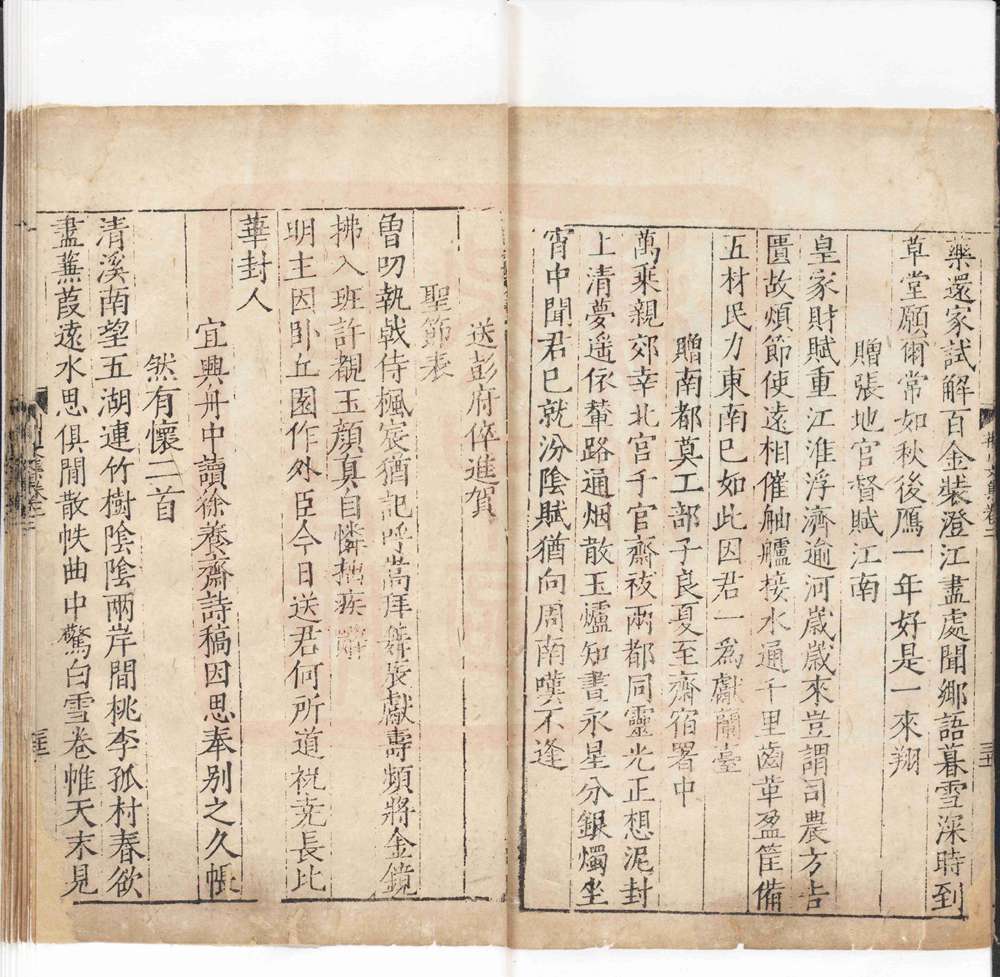 藥還家試解百金裝澄江盡處聞鄉語暮雪深時到
草堂願爾常如秋後鴈一年好是一來翔
贈張地官督賦江南
皇家財賦重江淮浮濟逾河歲歲來豈謂司農方告
匱故煩節使遠相催舳艫接水通千里齒革盈筐備
五材民力東南已如此因君一爲獻蘭臺
贈南都莫工部子良夏至齋宿署中
萬乘親郊幸北宮千官齋祓兩都同靈光正想泥封
上清夢遥依輦路通烟散玉爐知晝永星分銀燭坐
宵中聞君已就汾陰賦猶向周南嘆不逢
送彭府倅進賀
聖節表
曾叨執戟侍楓宸猶記呼嵩拜舞辰獻壽頻將金鏡
拂入班許覩玉顔真自憐抱疾辭
明主因卧丘園作外臣今日送君何所道祝堯長比
華封人
宜興舟中讀徐養齋詩稿因思奉别之久悵
然有懷二首
清溪南望五湖連竹樹陰陰兩岸間桃李孤村春欲
盡蒹葭遠水思俱閒散帙曲中驚白雪卷帷天末見